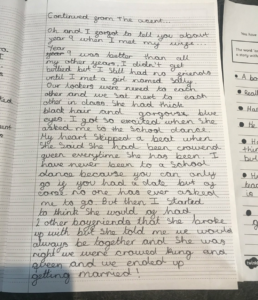 Continued from the event...
Oh and I forgot to tell you about
year 9 when I met my wife...
Year
9 was better than all
my other years I didn't get
bullied but I still had no friends
until I met a girl named Sally
Our lockers were next to each
other and we sat next to each
other in class. She had thick
black hair and gorgous blue
eyes. I got so excited when She
asked me to the School dance.
My heart skipped a beat when
She Said She had been crowend
queen everytime She has been I
have never been to a School
dance because you can only
go if you had a date but of
corse no one has ever asked
me to go. But then I Started
to think She would of had
other boyfreinds that She broke
up with but She told me we would
always be together and She was
right we were crowed King and
queen and we ended up
getting married!
You have
The word